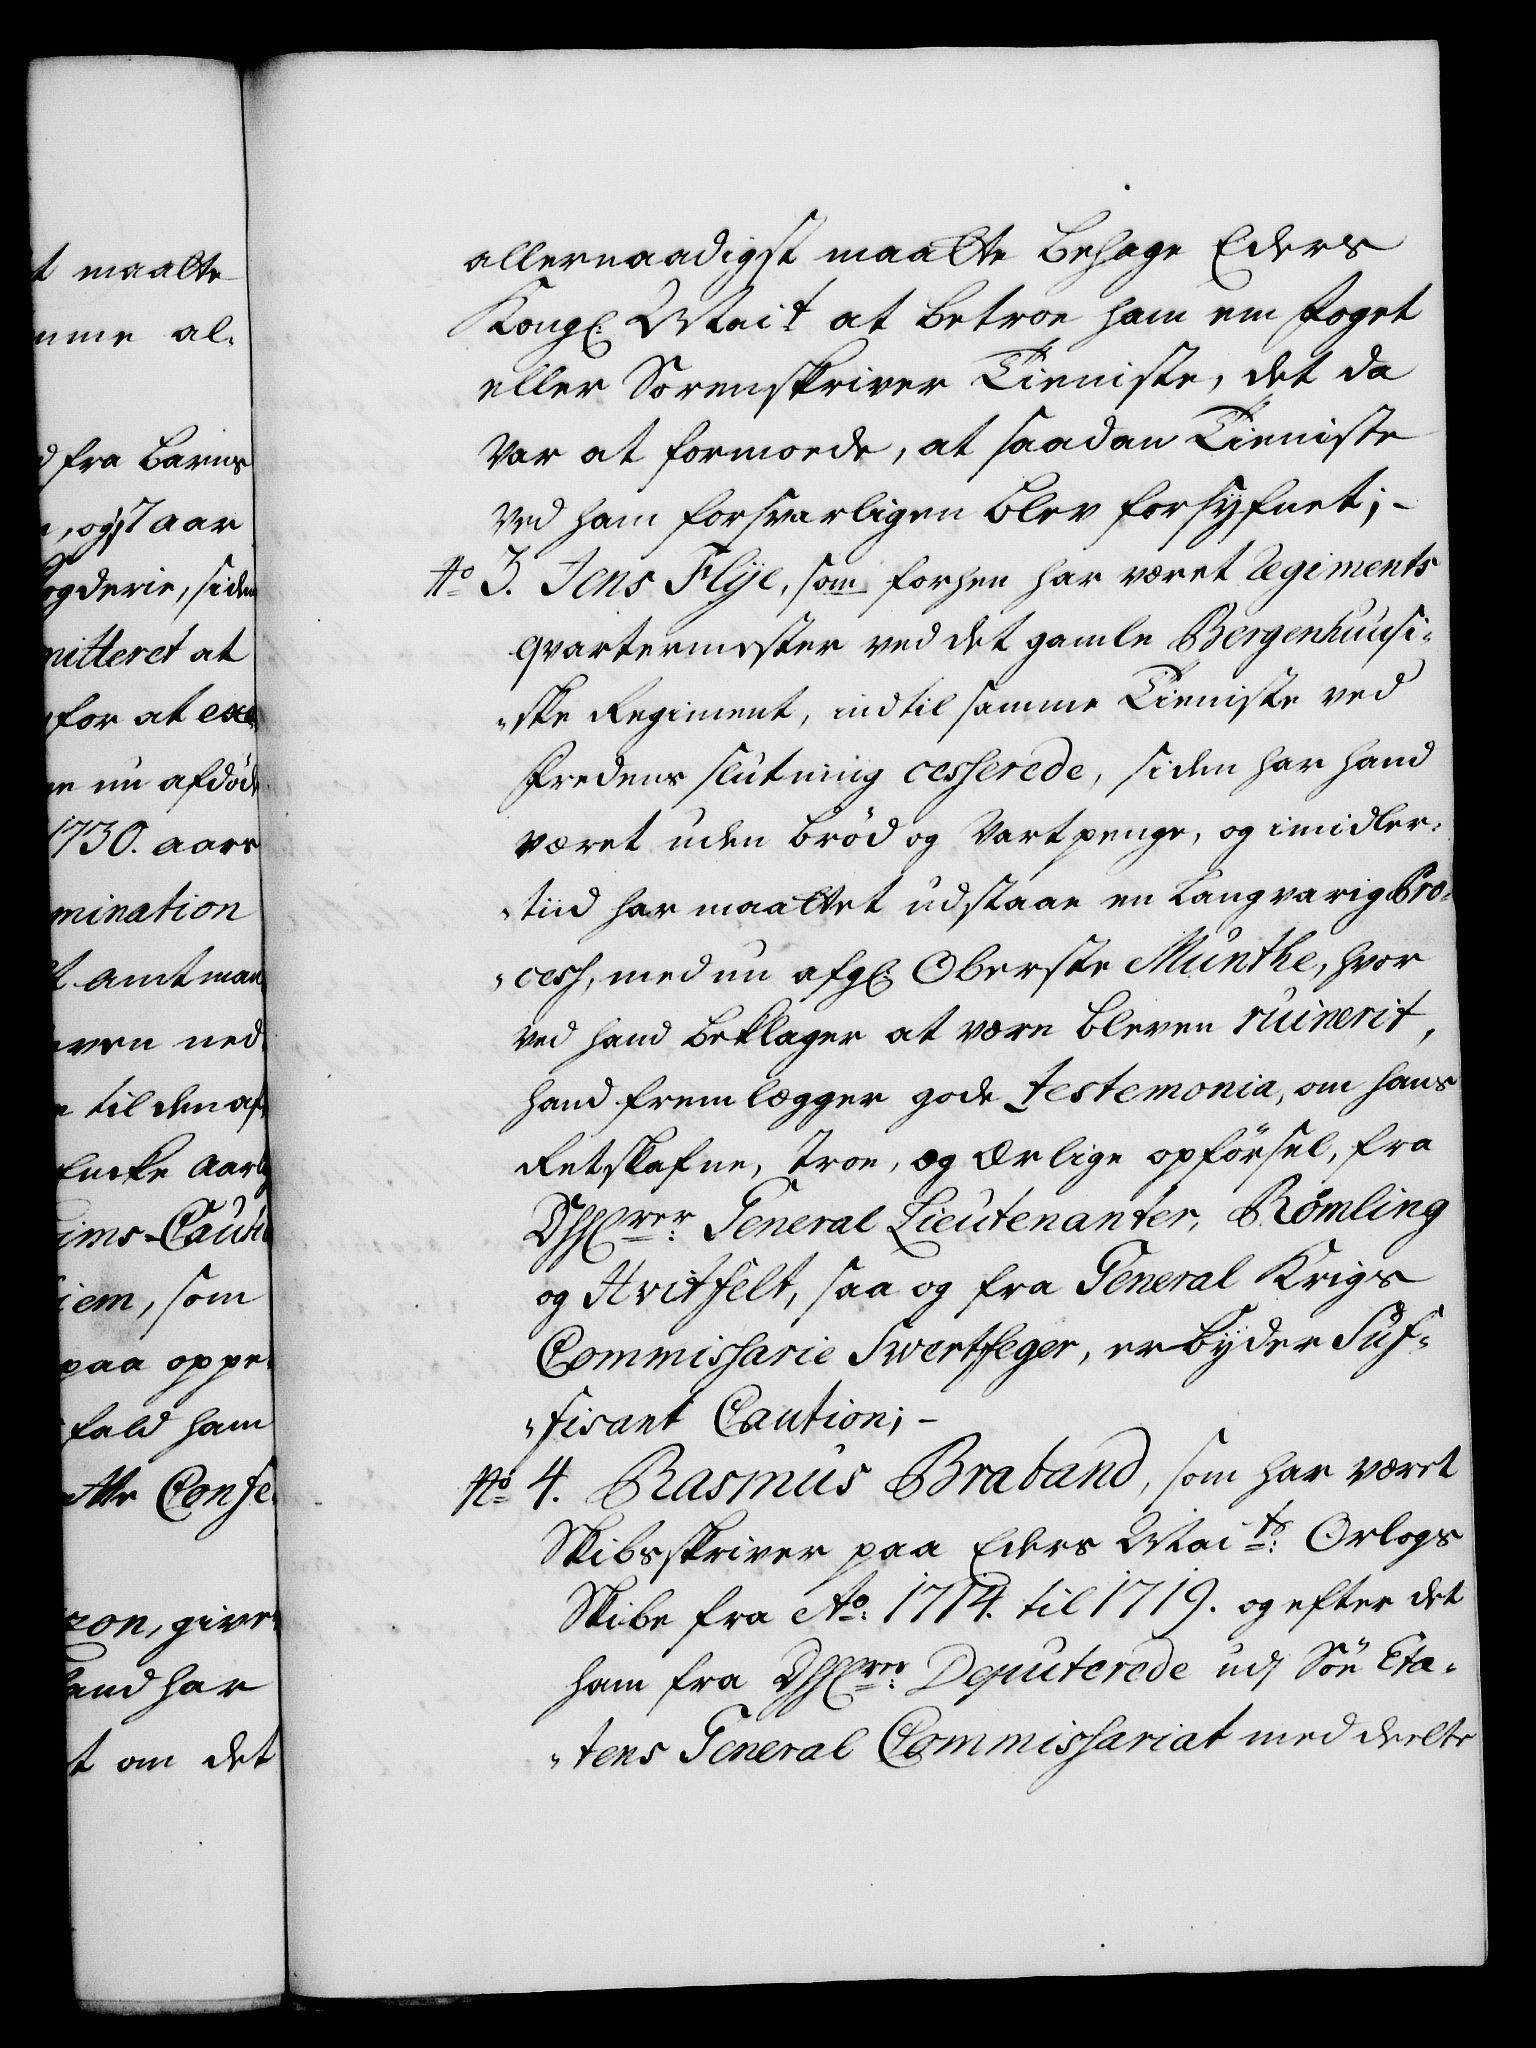 t maatte
mme al-
d fra Barns
, og 7 aar
ogderie, siden
mitteret at
for at exe-
nu afdøde
1730. aars
mination
t Amtmand
til den af-
Enke aarl
ims-Cauti
iem, som
paa oppe-
fald ham
Confe-
ron, give-
hand har
t om det
allernaadigst maatte behage Eders
Kongl: Mai:t at betroe ham een foget
eller Sorenskriver Tieniste, det da
var at formoede, at saadan Tieniste
ved ham forsvarligen blev forsyfnet; -
No 3. Jens Flÿe, som forhen har været Regiments
qvartermester ved det gamle Bergenhuusi-
-ske Regiment, indtil samme Tieniste ved
fredens slutning cesserede, siden har hand
været uden brød og Vartpenge, og imidler-
-tiid har maattet udstaae en langvarig Pro-
-cess, med nu afgl: Oberste Munthe, hvor
ved hand beklager at være bleven ruinerit,
hand fremlægger gode testemonia, om hans
Retskafne, troe, og ærlige opførsel, fra
DhHrer: General Lieutenanter, Rømling
og Hvitfelt, saa og fra General Krigs
Commissarie Swertfeger, erbÿder Suf-
-fisant Caution; -
No 4. Rasmus Braband, som har været
Skibsskriver paa Eders Mai:ts: Orlogs
Skibe fra Ao: 1714. til 1719. og efter det
ham fra DhHrer: Deputerede udj Søe Eta-
-tens General Commissariat med deelte